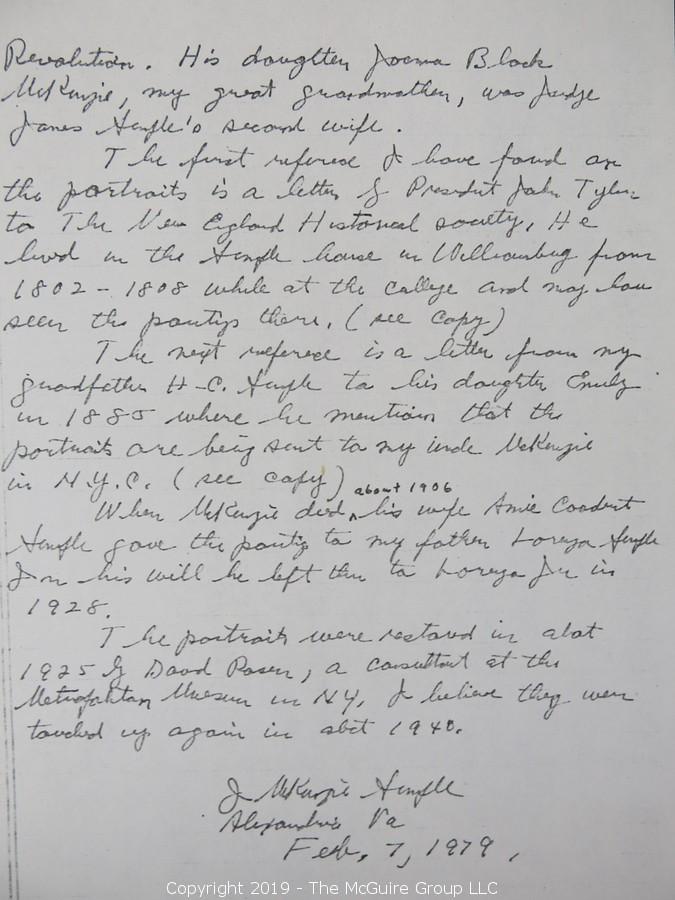 Revolution. His daughter Joanna Black
McKenzie, my great grandmother, was Judge
James Semple's second wife.
The first reference I have found on
the portraits is a letter of President John Tyler
to The New England Historical society, He
lived in the Semple house in Williamsburg from
1802 - 1808 while at the college and may have
seen the paintings there. (see copy)
The next reference is a letter from my
grandfather H-C. Semple to his daughter Emily
in 1885 where he mentions that the
portraits are being sent to my uncle McKenzie
in N.Y.C. (see copy)
about 1906
When McKenzie died, his wife Annie Semple
gave the paintings to my father Lorenzo Semple
In his will he left them to Lorenzo Jr in
1928.
The portraits were restored in about
1925 by David Rosen, a consultant at the
Metropolitan Museum in NY, I believe they were
touched up again in about 1940.
J McKenzie Semple
Alexandria Va
Feb, 7, 1979,
Copyright 2019 - The McGuire Group LLC